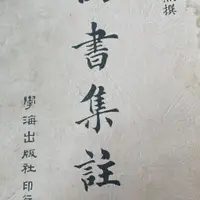 撰
書集註
學海出版社印行